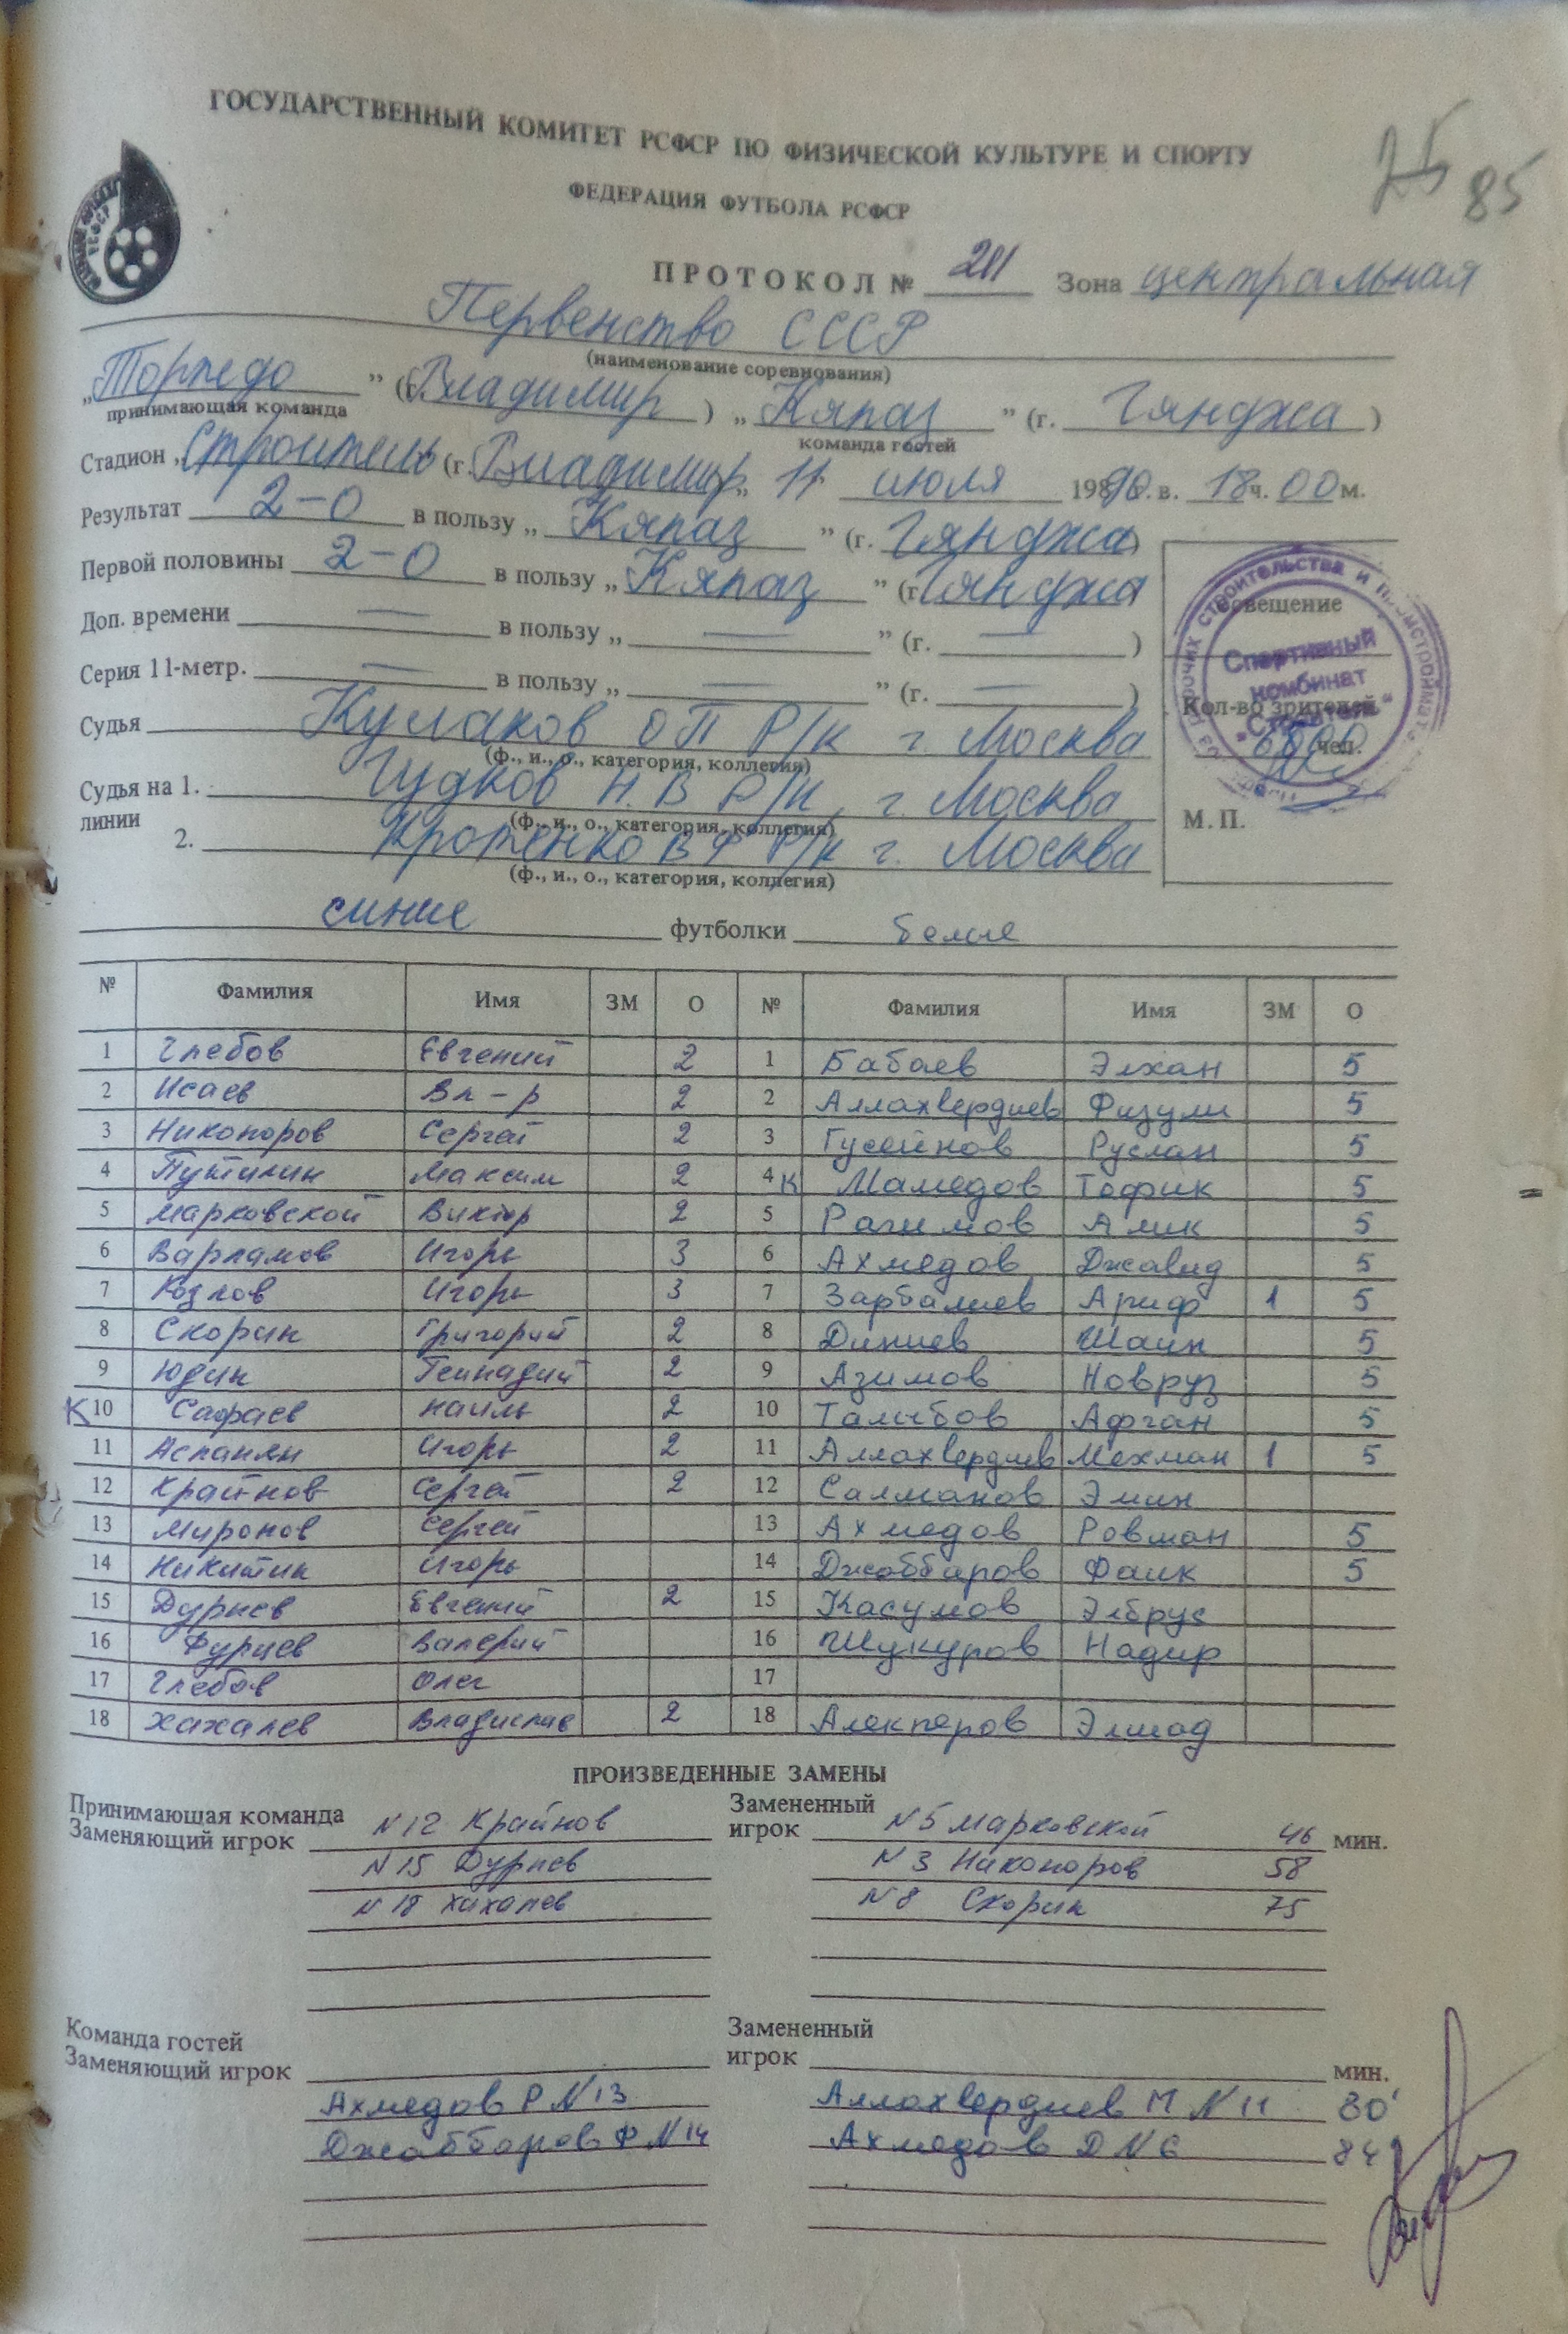 ГОСУДАРСТВЕННЫЙ КОМИТЕТ РСФСР ПО ФИЗИЧЕСКОЙ КУЛЬТУРЕ И СПОРТУ
85
ФЕДЕРАЦИЯ ФУТБОЛА РСФСР
ПРОТОКОЛ № 211 Зона центральная
Первенство СССР
(наименование соревнования)
„Торпедо” (г. Владимир) „Кяпаз” (г. Гянджа)
принимающая команда команда гостей
Стадион „Строитель (г. Владимир „ 11 июля 1990 г. в. 18 ч. 00 м.
Результат 2-0 в пользу „Кяпаз” (г. Гянджа)
Первой половины 2-0 в пользу „Кяпаз” (г. Гянджа
Доп. времени — в пользу „ — ” (г. — )
Серия 11-метр. — в пользу „ — ” (г. — )
Освещение
Спортивный комбинат „Строитель“
Кол-во зрителей
чел.
М. П.
Судья Кулаков ОП Р/к г. Москва
(ф., и., о., категория, коллегия)
Судья на 1. линии Гудков Н.В Р/к, г. Москва
(ф., и., о., категория, коллегия)
2. Кротенко В Ф Р/к г. Москва
(ф., и., о., категория, коллегия)
синие футболки белые
№ Фамилия Имя ЗМ О № Фамилия Имя ЗМ О
1 Глебов Евгений 2 1 Бабаев Элхан 5
2 Исаев Вл-р 2 2 Аллахвердиев Физули 5
3 Никоноров Сергей 2 3 Гусейнов Руслан 5
4 Путилин Максим 2 4 К Мамедов Тофик 5
5 Марковской Виктор 2 5 Рагимов Алик 5
6 Варламов Игорь 3 6 Ахмедов Джавид 5
7 Козлов Игорь 3 7 Зарбалиев Ариф 1 5
8 Скорин Григорий 2 8 Диниев Шаин 5
9 Юдин Геннадий 2 9 Азимов Новруз 5
К 10 Сафаев Наиль 2 10 Талыбов Афган 5
11 Асланян Игорь 2 11 Аллахвердиев Мехман 1 5
12 Крайнов Сергей 2 12 Салманов Эмин
13 Миронов Сергей 13 Ахмедов Ровшан 5
14 Никитин Игорь 14 Джаббаров Фаик 5
15 Дурнев Евгений 2 15 Касумов Элбрус
16 Фурцев Валерий 16 Шукуров Надир
17 Глебов Олег 17
18 Хахалев Владислав 2 18 Алекперов Элшад
ПРОИЗВЕДЕННЫЕ ЗАМЕНЫ
Принимающая команда Замененный
Заменяющий игрок N12 Крайнов игрок N5 Марковской 46 мин.
N15 Дурнев N3 Никоноров 58
N18 Хахалев N8 Скорин 75
Команда гостей Замененный
Заменяющий игрок игрок мин.
Ахмедов Р N13 Аллахвердиев М N11 80'
Джаббаров Ф N14 Ахмедов Д N6 84